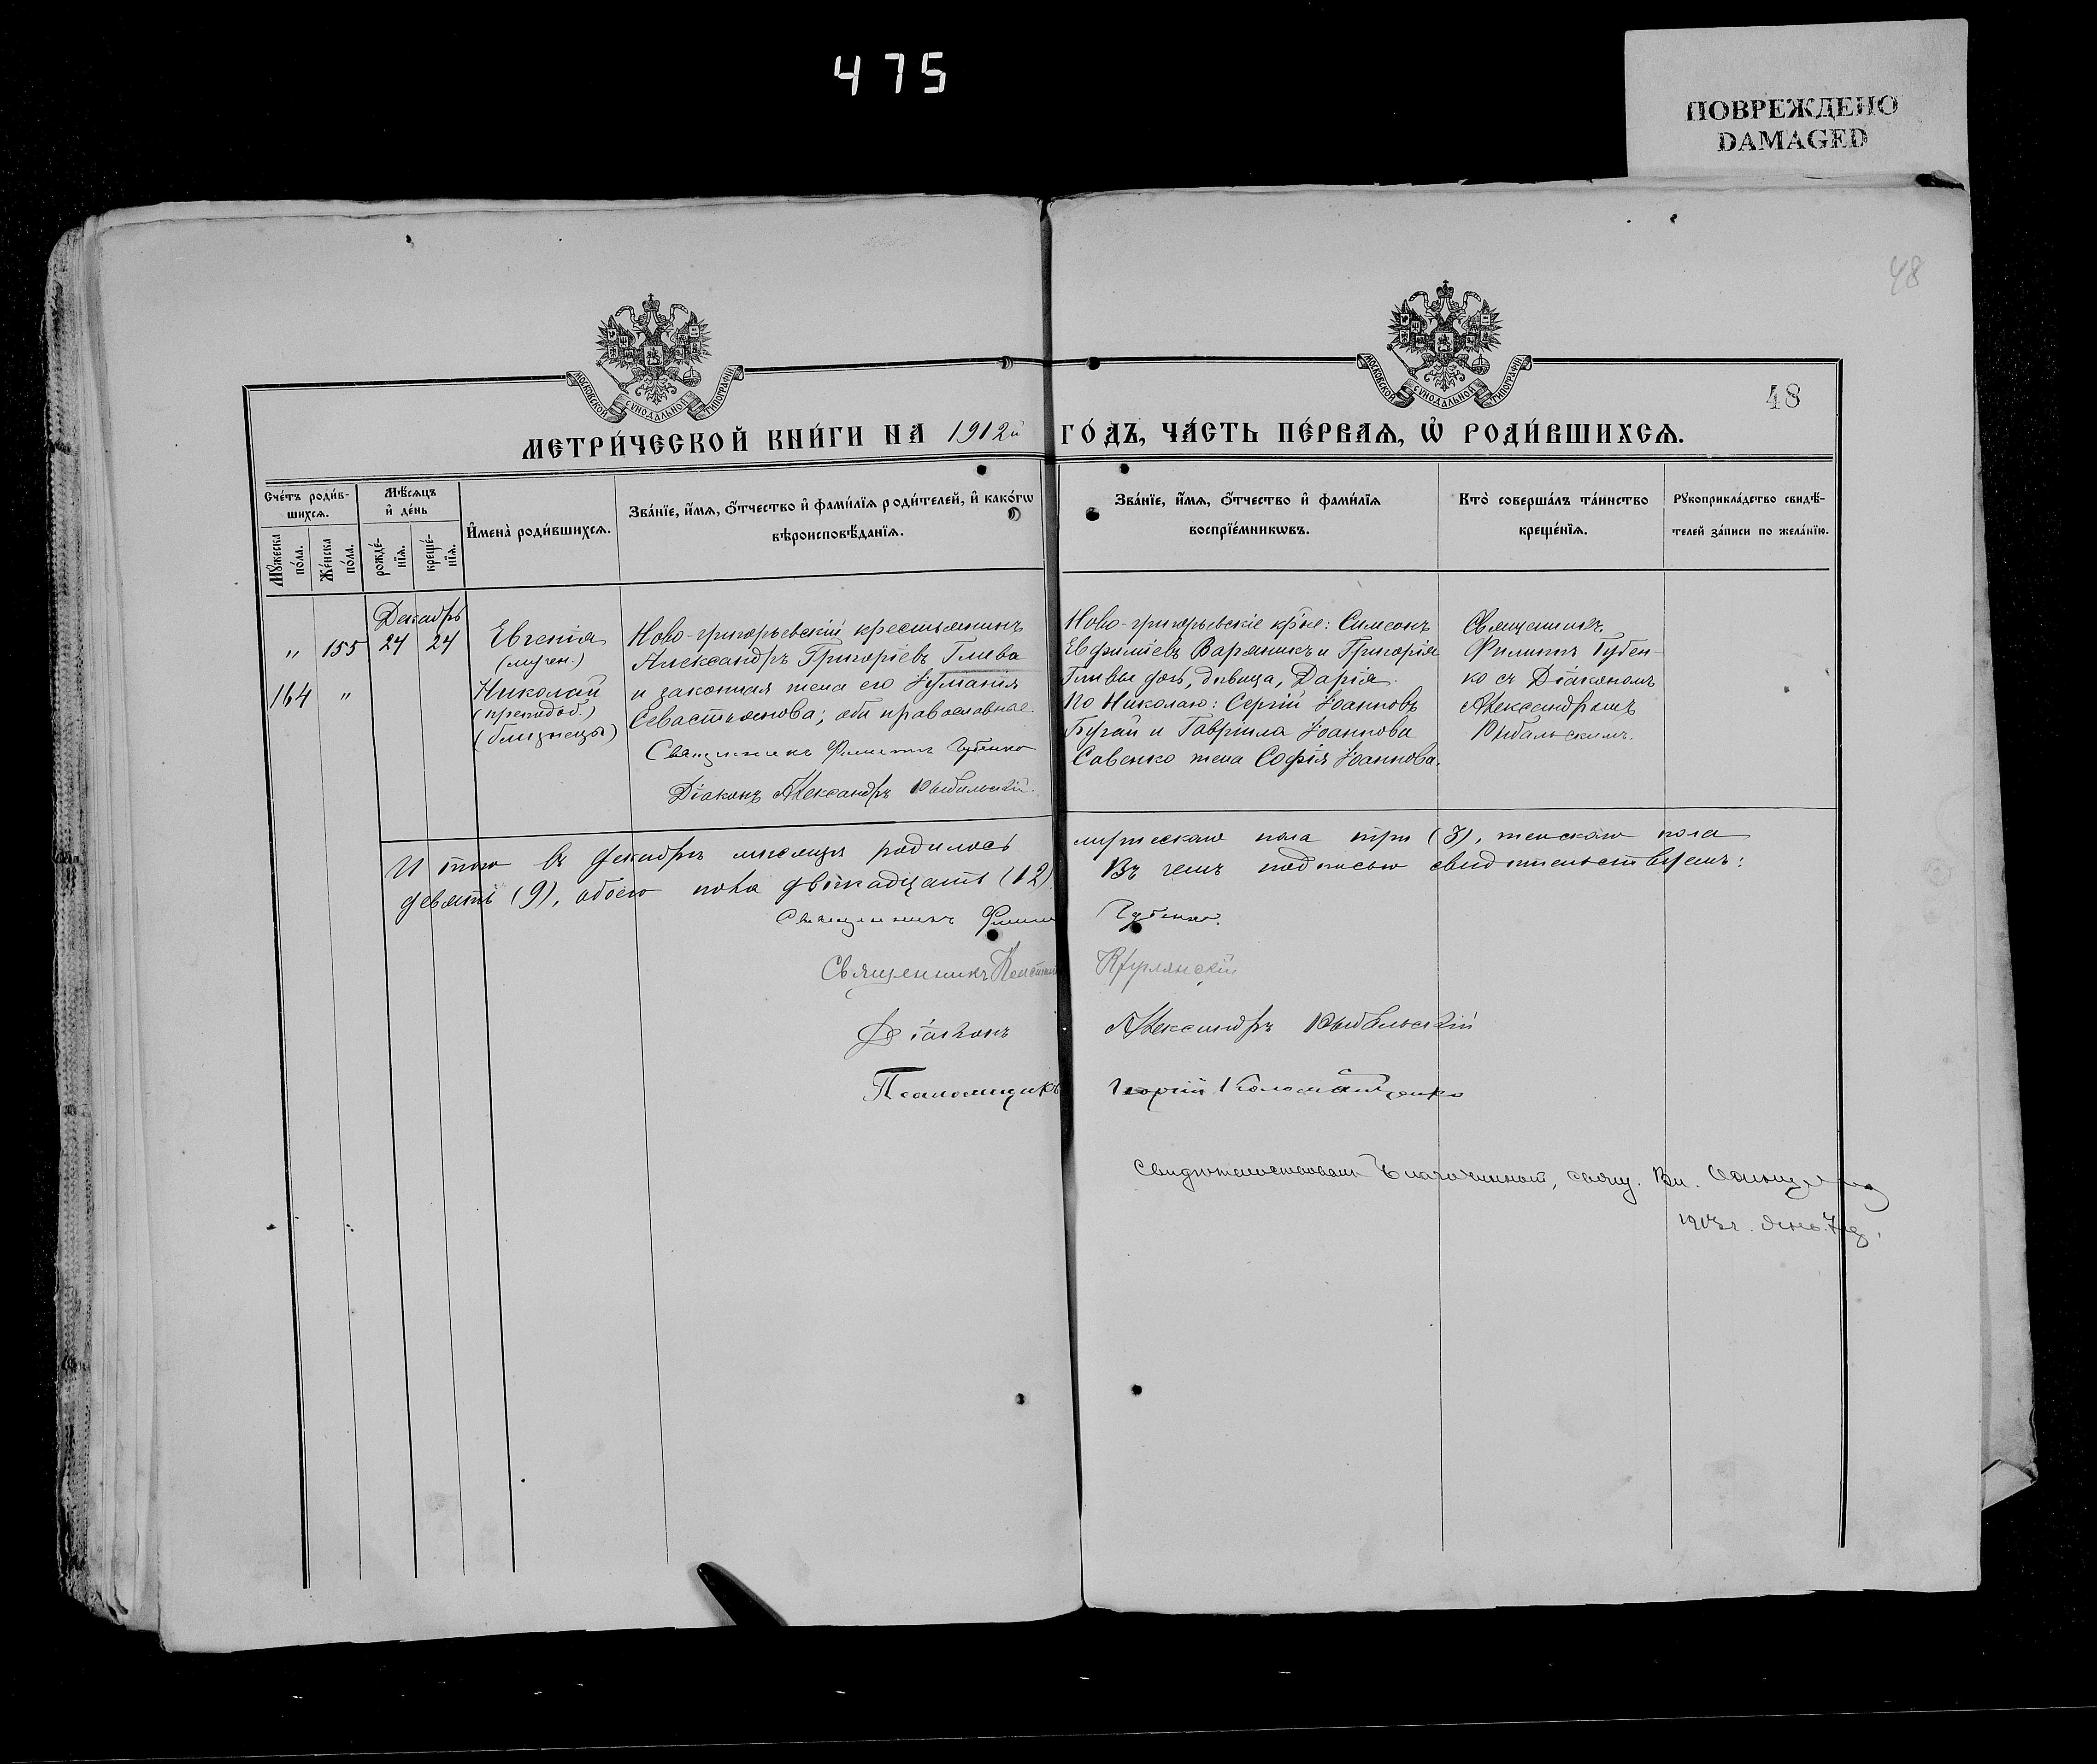 475
ПОВРЕЖДЕНО
DAMAGED
48
МОСКОВСКОЙ СУНОДАЛЬНОЙ ТИПОГРАФІИ
МОСКОВСКОЙ СУНОДАЛЬНОЙ ТИПОГРАФІИ
48
МЕТРИ́ЧЕСКОЙ КНИ́ГИ НА 1912й ГО́ДЪ, ЧА́СТЬ ПЕ́РВАѦ, Ѡ҆ РОДИ́ВШИХСѦ.
Сче́тъ роди́в-
шихсѧ.
Мꙋ́жеска
по́ла.
Же́нска
по́ла.
Мѣ́сѧцъ
и҆ де́нь
рожде́-
нїѧ.
креще́-
нїѧ.
И҆мена̀ роди́вшихсѧ.
Зва́нїе, и҆́мѧ, ѻ҆́тчество и҆ фами́лїѧ роди́телей, и҆ како́гѡ
вѣроисповѣ́данїѧ.
Зва́нїе, и҆́мѧ, ѻ҆́тчество и҆ фами́лїѧ
воспрїе́мникѡвъ.
Кто̀ соверша́лъ та́инство
креще́нїѧ.
Рꙋкоприкла́дство свидѣ́-
телей за́писи по жела́нїю.
Декабрь
" 155 24 24
Евгенія
(мучен.)
164 "
Николай
(преподоб.)
(близнецы)
Ново-григорьевскій крестьянинъ
Александръ Григоріевъ Глива
и законная жена его Іуліанія
Севастьянова; оба православные.
Священникъ Филиппъ Губенко
Діаконъ Александръ Рыбальскій.
Ново-григорьевскіе кр‑не: Симеонъ
Евфиміевъ Вареникъ и Григорія
Гливы дочь, дѣвица, Дарія.
По Николаю: Сергій Іоанновъ
Бугай и Гавріила Іоаннова
Савенко жена Софія Іоаннова.
Священникъ
Филиппъ Губен-
ко съ Діакономъ
Александромъ
Рыбальскимъ.
Итого въ Декабрѣ мѣсяцѣ родилось мужескаго пола три (3), женскаго пола
девять (9), обоего пола двѣнадцать (12). Въ чемъ подписью свидѣтельствуемъ:
Священникъ Филиппъ Губенко.
Священникъ
Діаконъ Александръ Рыбальскій
Псаломщикъ Георгій Коломайченко
Свидѣтельствовалъ Благочинный, свящ. Вл.
1913 г.